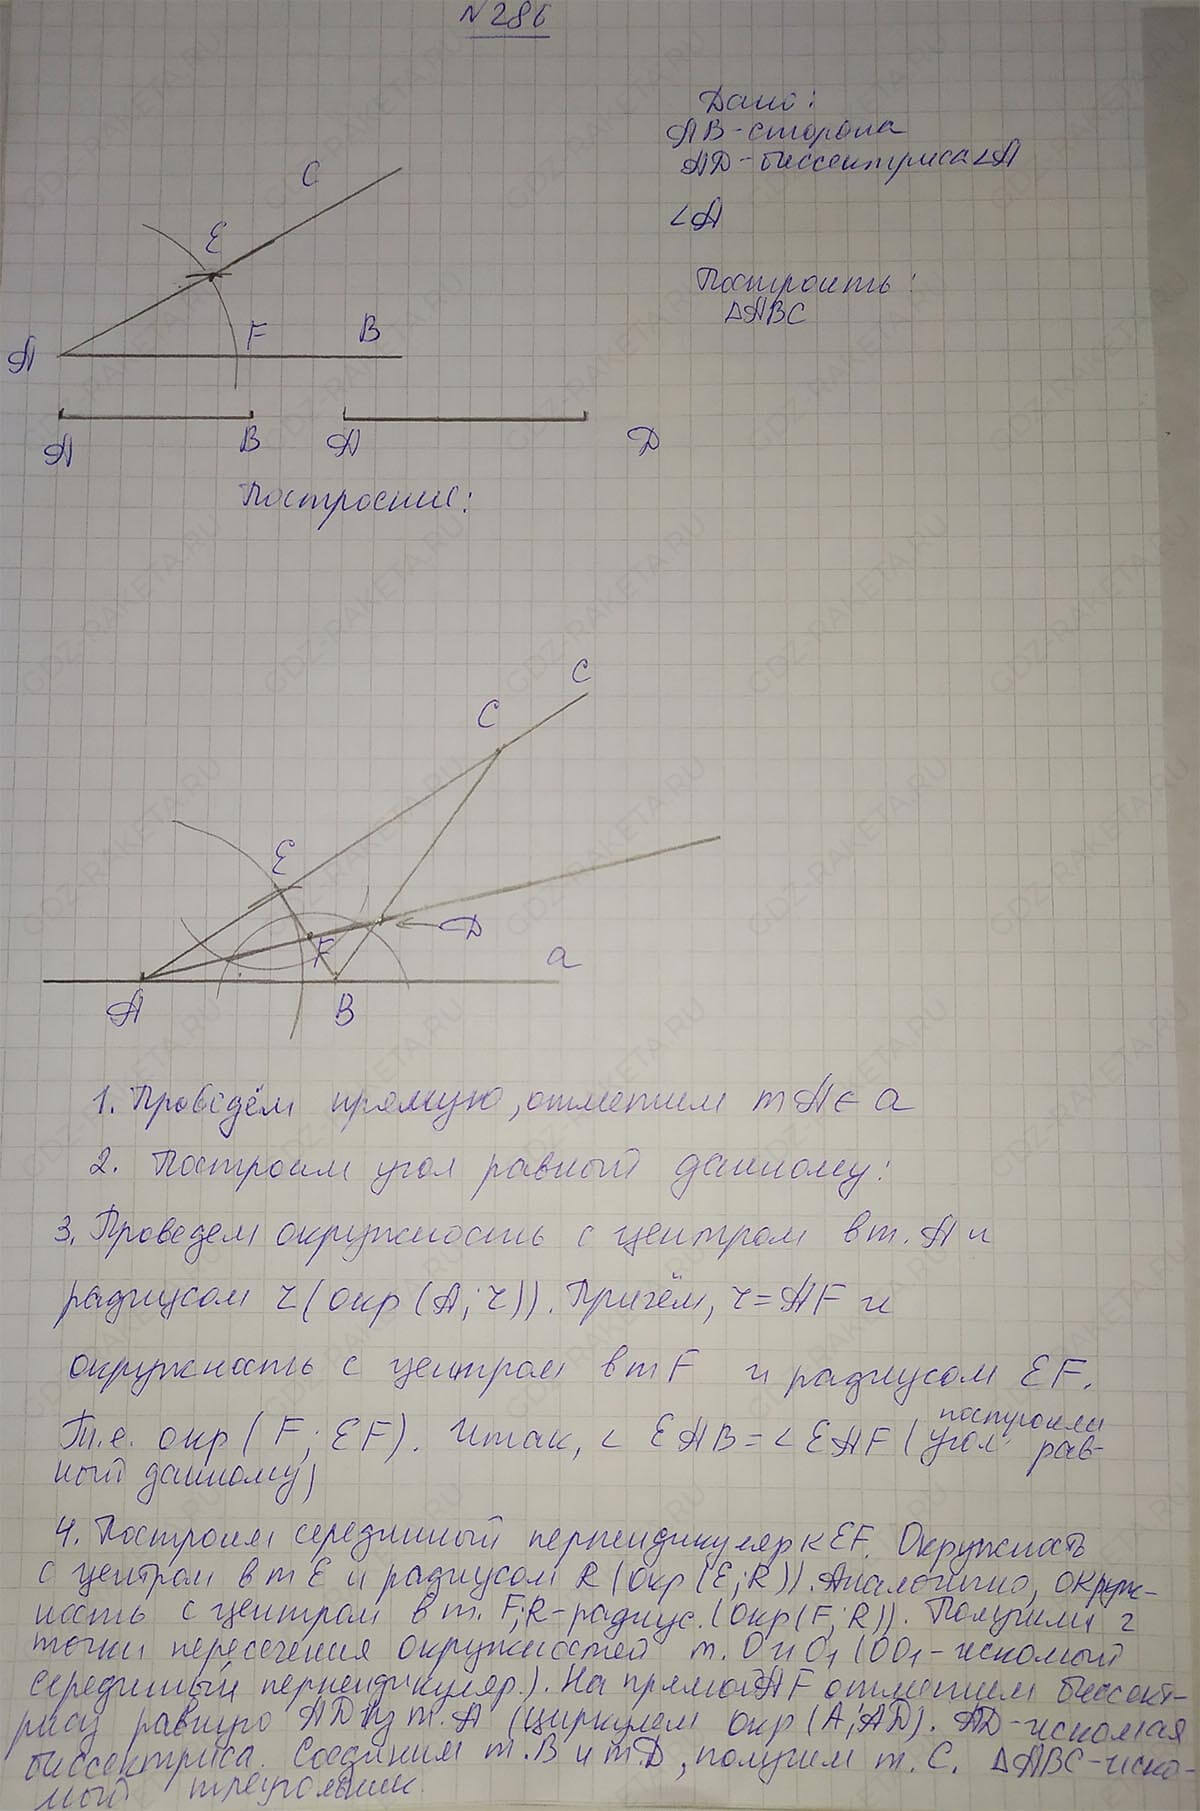 №286
Дано:
AB-сторона
AD-биссектриса∠A
∠A
Построить:
△ABC
C
E
F
B
A
A
B
A
D
Построение:
C
C
E
D
F
a
A
B
1. Проведём прямую, отметим т A∈ a
2. Построим угол равный данному:
3. Проведем окружность с центром в т. A и
радиусом r (окр (A; r)). Причём, r = AF и
окружность с центром в т F и радиусом EF.
Т.е. окр (F; EF). Итак, ∠ EAB = ∠ EAF (построили
угол рав-
ный данному)
4. Построим серединный перпендикуляр к EF. Окружность
с центром в т E и радиусом R (окр (E; R)). Аналогично, окруж-
ность с центром в т. F; R-радиус. (окр (F; R)). Получили 2
точки пересечения окружностей т. O и O1 (OO1-искомый
серединный перпендикуляр.). На прямой AF отметим биссект-
рису равную AD из т. A (циркулем окр (A; AD). AD-искомая
биссектриса. Соединим т. B и т D, получим т. C. △ABC-иско-
мый треугольник.
GDZ-RAKETA.RU